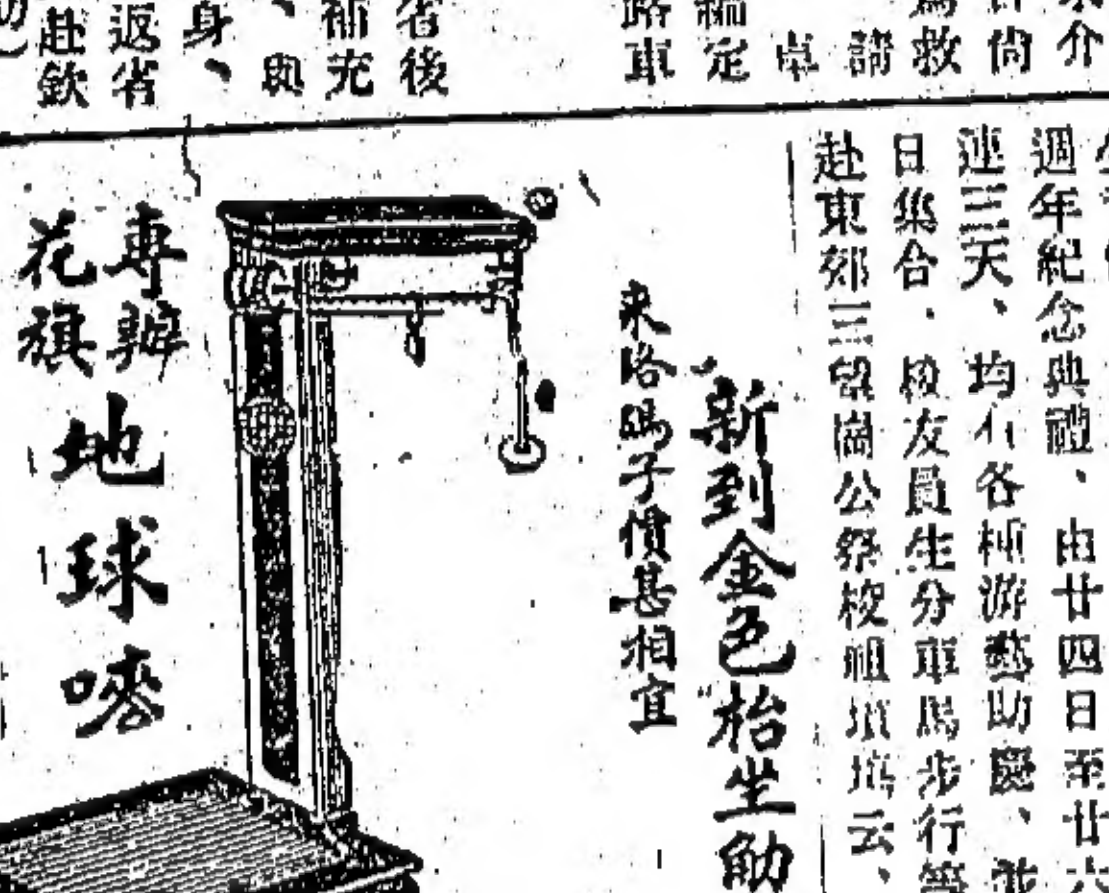 介
尚
救
請
卓
編定
路車
省後
補充
與
身、
返省
赴欽
週年紀念典禮、由廿四日至廿六
連三天、均有各種游藝助慶、
日集合、校友員生分車馬步行等
赴東郊三望崗公祭校祖墳塲云、
新到金色枱坐
來路碼子價甚相宜
專辦
花旗
地球嘜